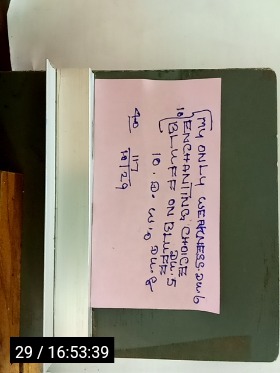 MY ONLY WEAKNESS. DW 6
18 ENCHANTING CHOICE
DW. 5
BLUFF ON BLUFF
10. D. W, O DW. 8
40 117
29 / 16:53:39